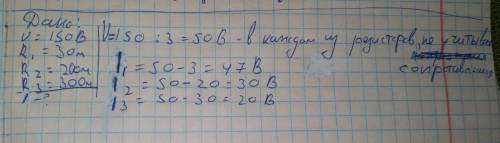 Дано:
V = 150 В
R₁ = 30м
R₂ = 200м
R₃ = 300м
I - ?
V = 150 : 3 = 50 В - в каждом из резисторов, не учитывая
сопротивления
I₁ = 50 - 3 = 47 В
I₂ = 50 - 20 = 30 В
I₃ = 50 - 30 = 20 В